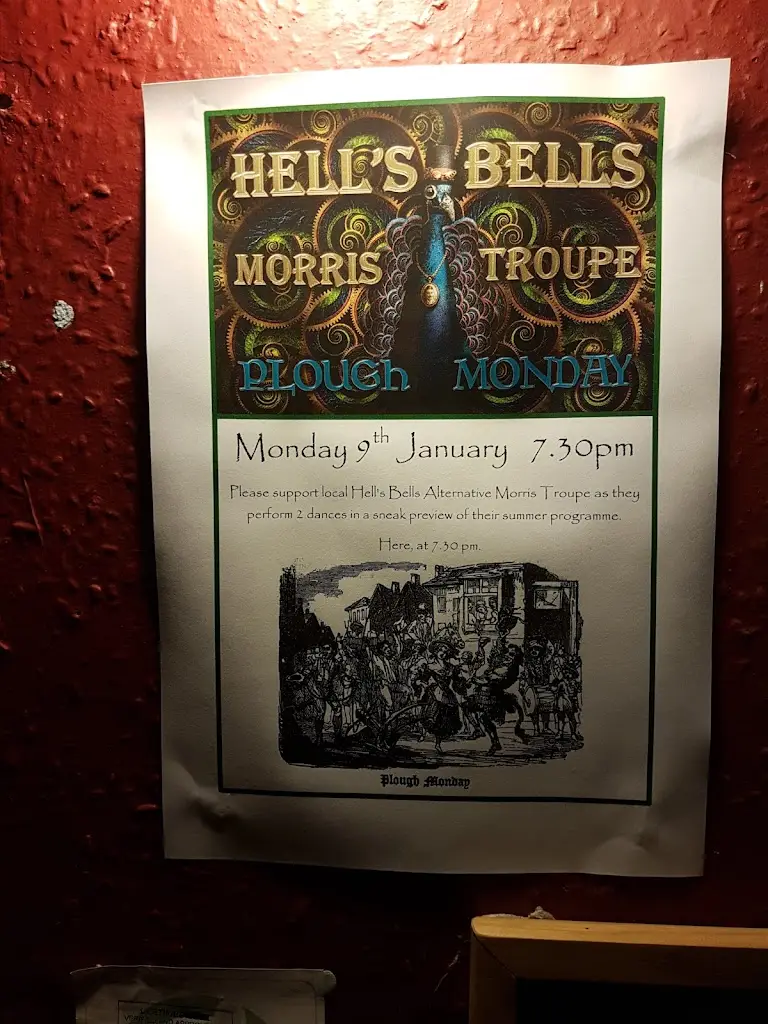 HELL'S BELLS
MORRIS TROUPE
PLOUGH MONDAY
Monday 9th January 7.30pm
Please support local Hell's Bells Alternative Morris Troupe as they
perform 2 dances in a sneak preview of their summer programme.
Here, at 7.30 pm.
Plough Monday